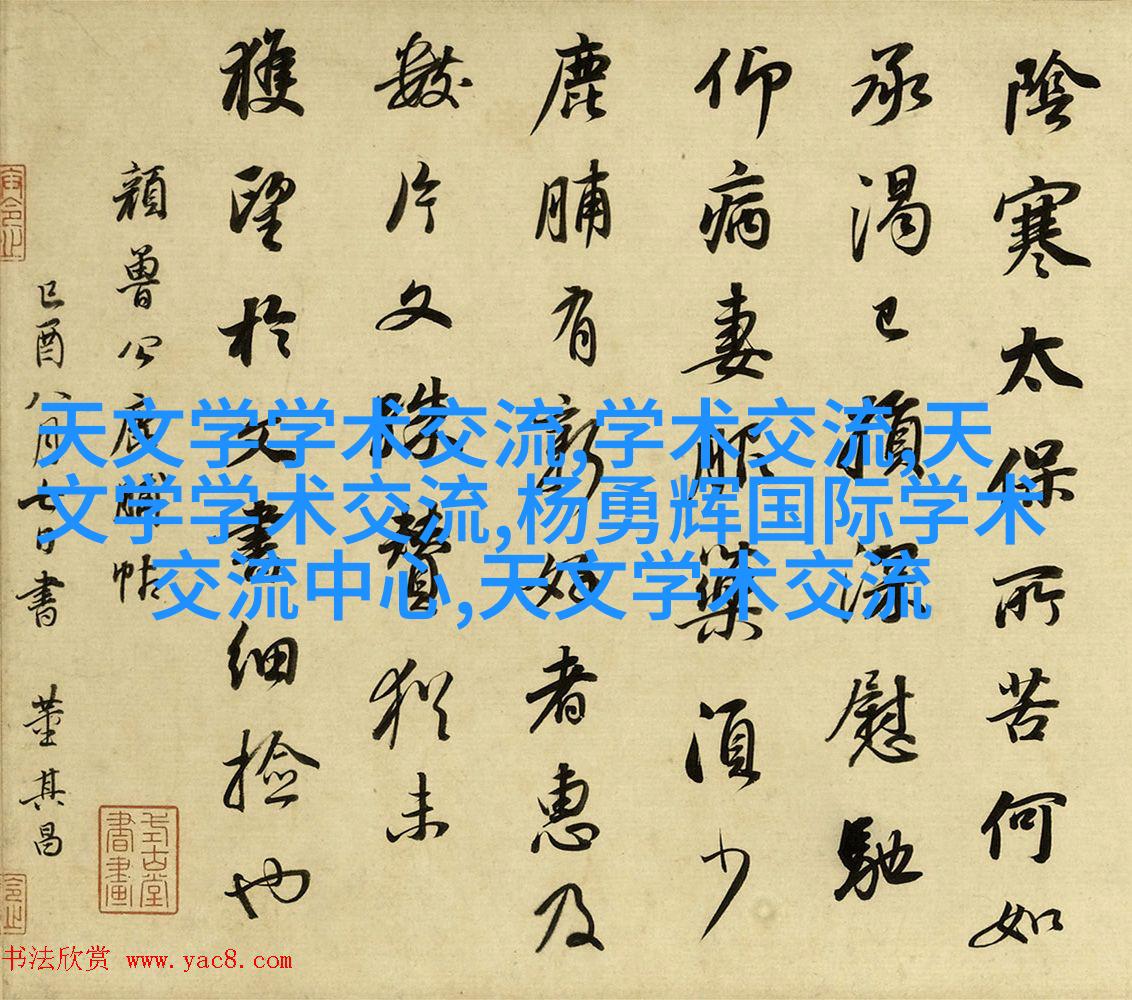 陰寒太保所苦何如
承渴已損深慰馳
仰病妻服藥須少
鹿脯有新好者惠及
數片文殊贊猶未
獲望於文書細撿也
顏魯公鹿脯帖
己酉八月七日書 董其昌
天文学学术交流,学术交流,天
文学学术交流,杨勇辉国际学术
交流中心,天文学术交流
书法欣赏 www.yac8.com